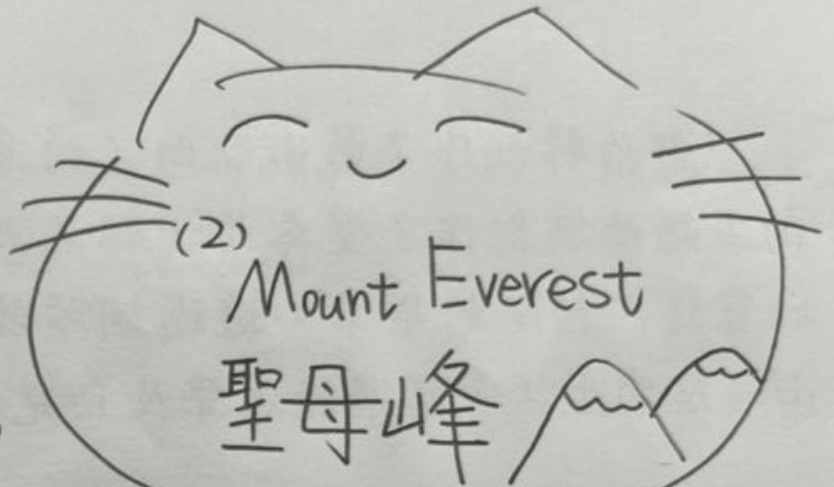 (2)
Mount Everest
聖母峰